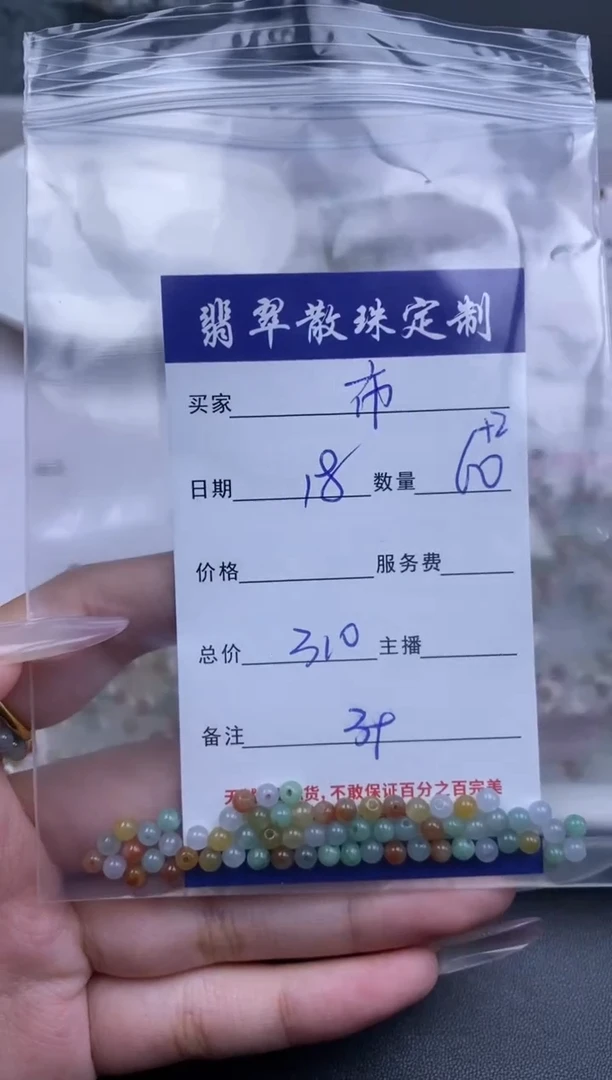 翡翠散珠定制
买家 布
日期 18 数量 60+2
价格 服务费
总价 310 主播
备注
天 货,不敢保证百分之百完美